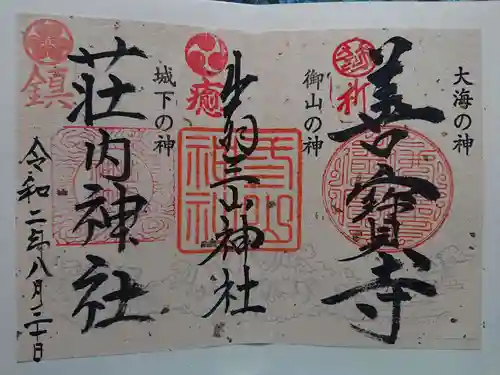 大海の神
祈
善寳寺
御山の神
癒
出羽三山神社
城下の神
鎮
荘内神社
令和二年八月二十日